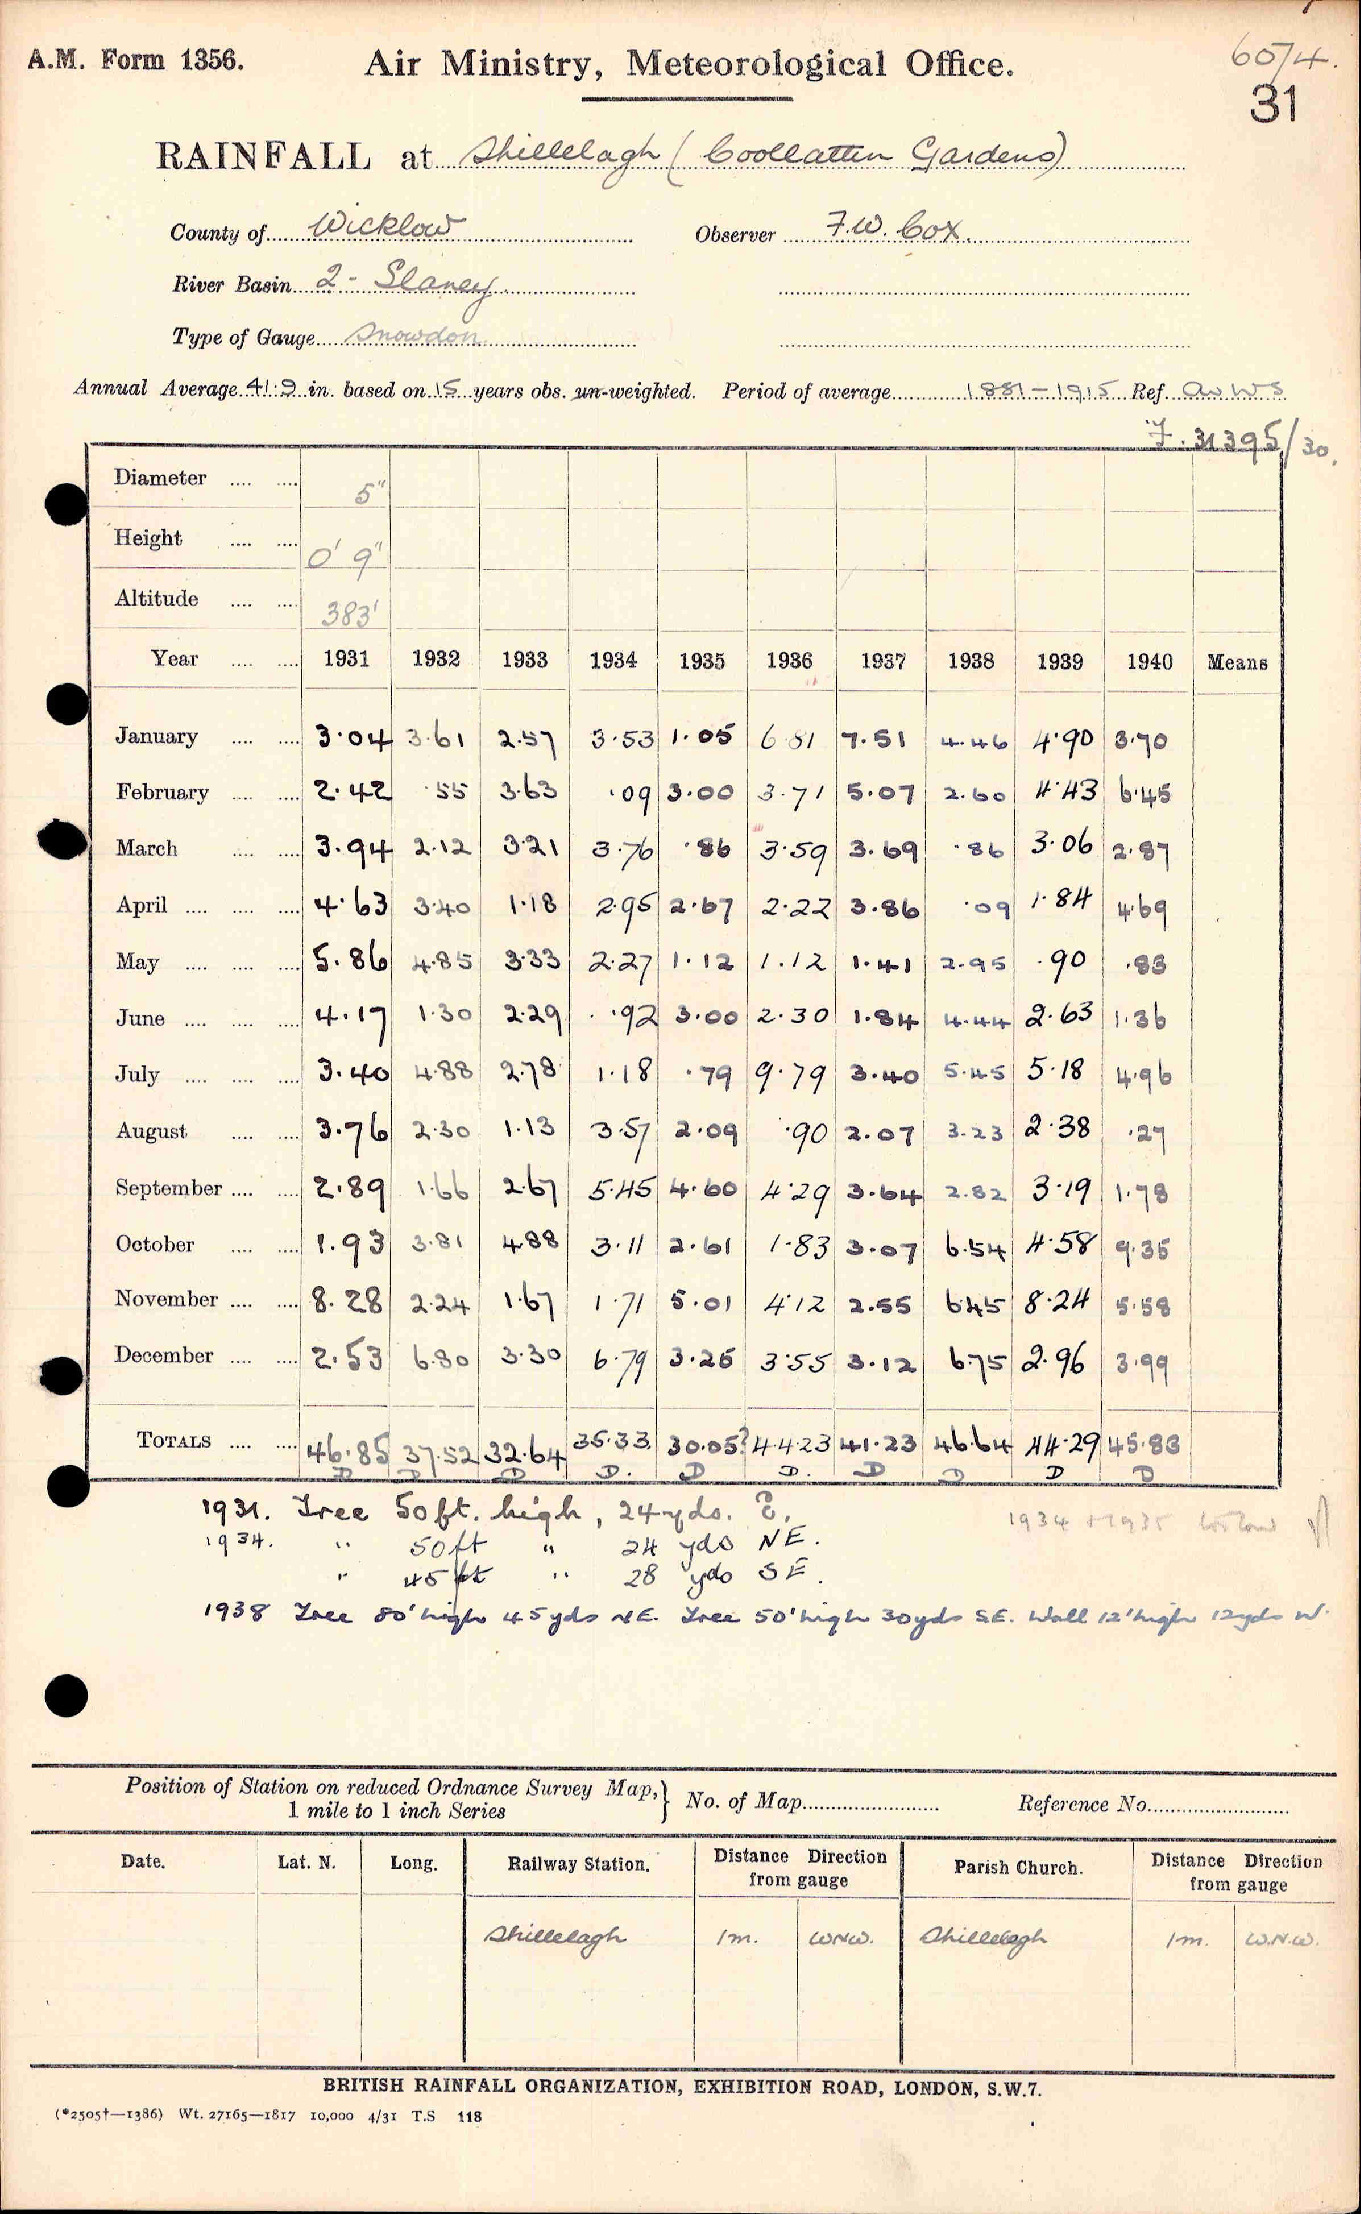 A.M. Form 1356. Air Ministry, Meteorological Office. 60/4.
31
RAINFALL at Shillelagh (Coollattin Gardens)
County of Wicklow Observer F.W. Cox.
River Basin 2 - Slaney.
Type of Gauge Snowdon
Annual Average 41.9 in. based on 15 years obs. un-weighted. Period of average 1881-1915 Ref. Av. W S
F. 31395/30.
Diameter .... .... 5"
Height .... .... 0' 9"
Altitude .... .... 383'
Year .... .... 1931 1932 1933 1934 1935 1936 1937 1938 1939 1940 Means
January .... .... 3.04 3.61 2.57 3.53 1.05 6.81 7.51 4.46 4.90 3.70
February .... .... 2.42 .55 3.63 .09 3.00 3.71 5.07 2.60 4.43 6.45
March .... .... 3.94 2.12 3.21 3.76 .86 3.59 3.69 .86 3.06 2.87
April .... .... .... 4.63 3.40 1.18 2.95 2.67 2.22 3.86 .09 1.84 4.69
May .... .... .... 5.86 4.85 3.33 2.27 1.12 1.12 1.41 2.95 .90 .83
June .... .... .... 4.17 1.30 2.29 .92 3.00 2.30 1.84 4.44 2.63 1.36
July .... .... .... 3.40 4.88 2.78 1.18 .79 9.79 3.40 5.45 5.18 4.96
August .... .... 3.76 2.30 1.13 3.57 2.09 .90 2.07 3.23 2.38 .27
September .... .... 2.89 1.66 2.67 5.45 4.60 4.29 3.64 2.82 3.19 1.78
October .... .... 1.93 3.81 4.88 3.11 2.61 1.83 3.07 6.54 4.58 9.35
November .... .... 8.28 2.24 1.67 1.71 5.01 4.12 2.55 6.45 8.24 5.58
December .... .... 2.53 6.80 3.30 6.79 3.25 3.55 3.12 6.75 2.96 3.99
TOTALS .... .... 46.85 37.52 32.64 35.33 30.05? 44.23 41.23 46.64 44.29 45.83
D D D D. D D. D D D D
1931. Tree 50 ft. high, 24 yds. E. 1934 + 1935
1934. " 50 ft " 24 yds NE.
" 45 ft " 28 yds SE.
1938 Tree 80' high 45 yds NE. Tree 50' high 30 yds S.E. Wall 12' high 12 yds W.
Position of Station on reduced Ordnance Survey Map,} No. of Map Reference No.
1 mile to 1 inch Series
Date. Lat. N. Long. Railway Station. Distance Direction from gauge Parish Church. Distance Direction from gauge
Shillelagh 1 m. WNW. Shillelagh 1 m. W.N.W.
BRITISH RAINFALL ORGANIZATION, EXHIBITION ROAD, LONDON, S.W.7.
(*2505†—1386) Wt. 27165—1817 10,000 4/31 T.S 118